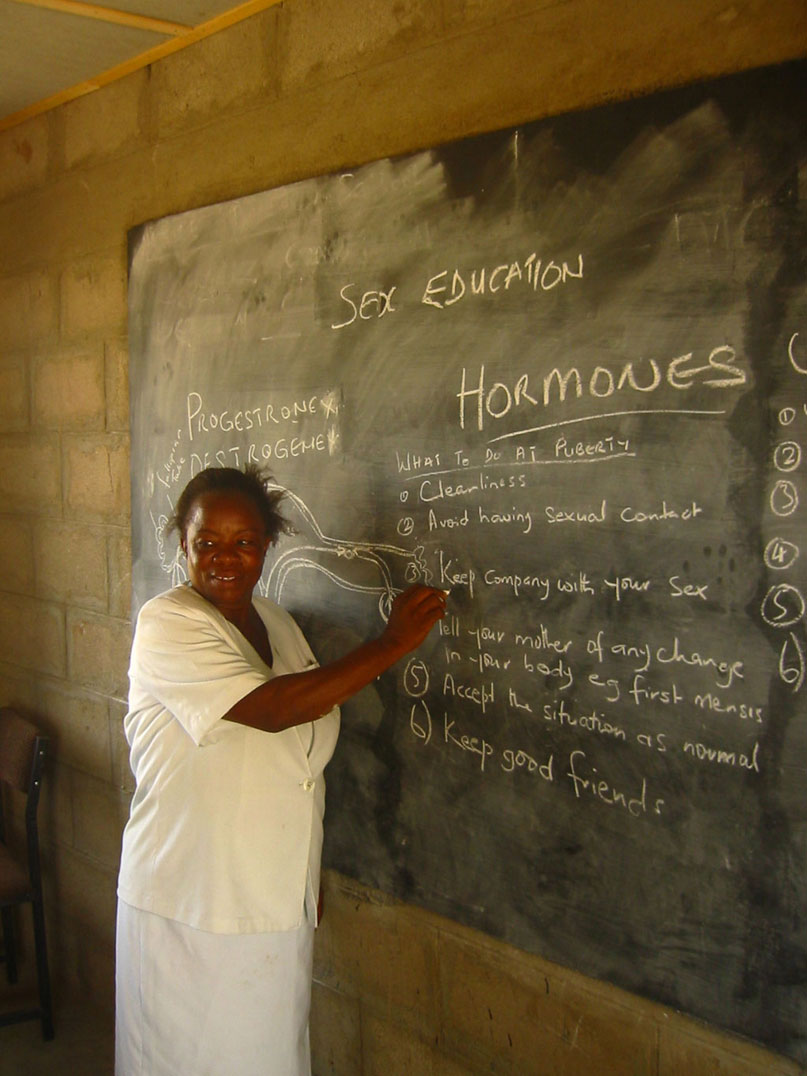 SEX EDUCATION
PROGESTRONE
OESTROGENE
HORMONES
WHAT TO DO AT PUBERTY
① Cleanliness
② Avoid having sexual contact
③ Keep company with your sex
Tell your mother of any change
in your body eg first mensis
⑤ Accept the situation as normal
6) Keep good friends
①
②
③
④
⑤
6)